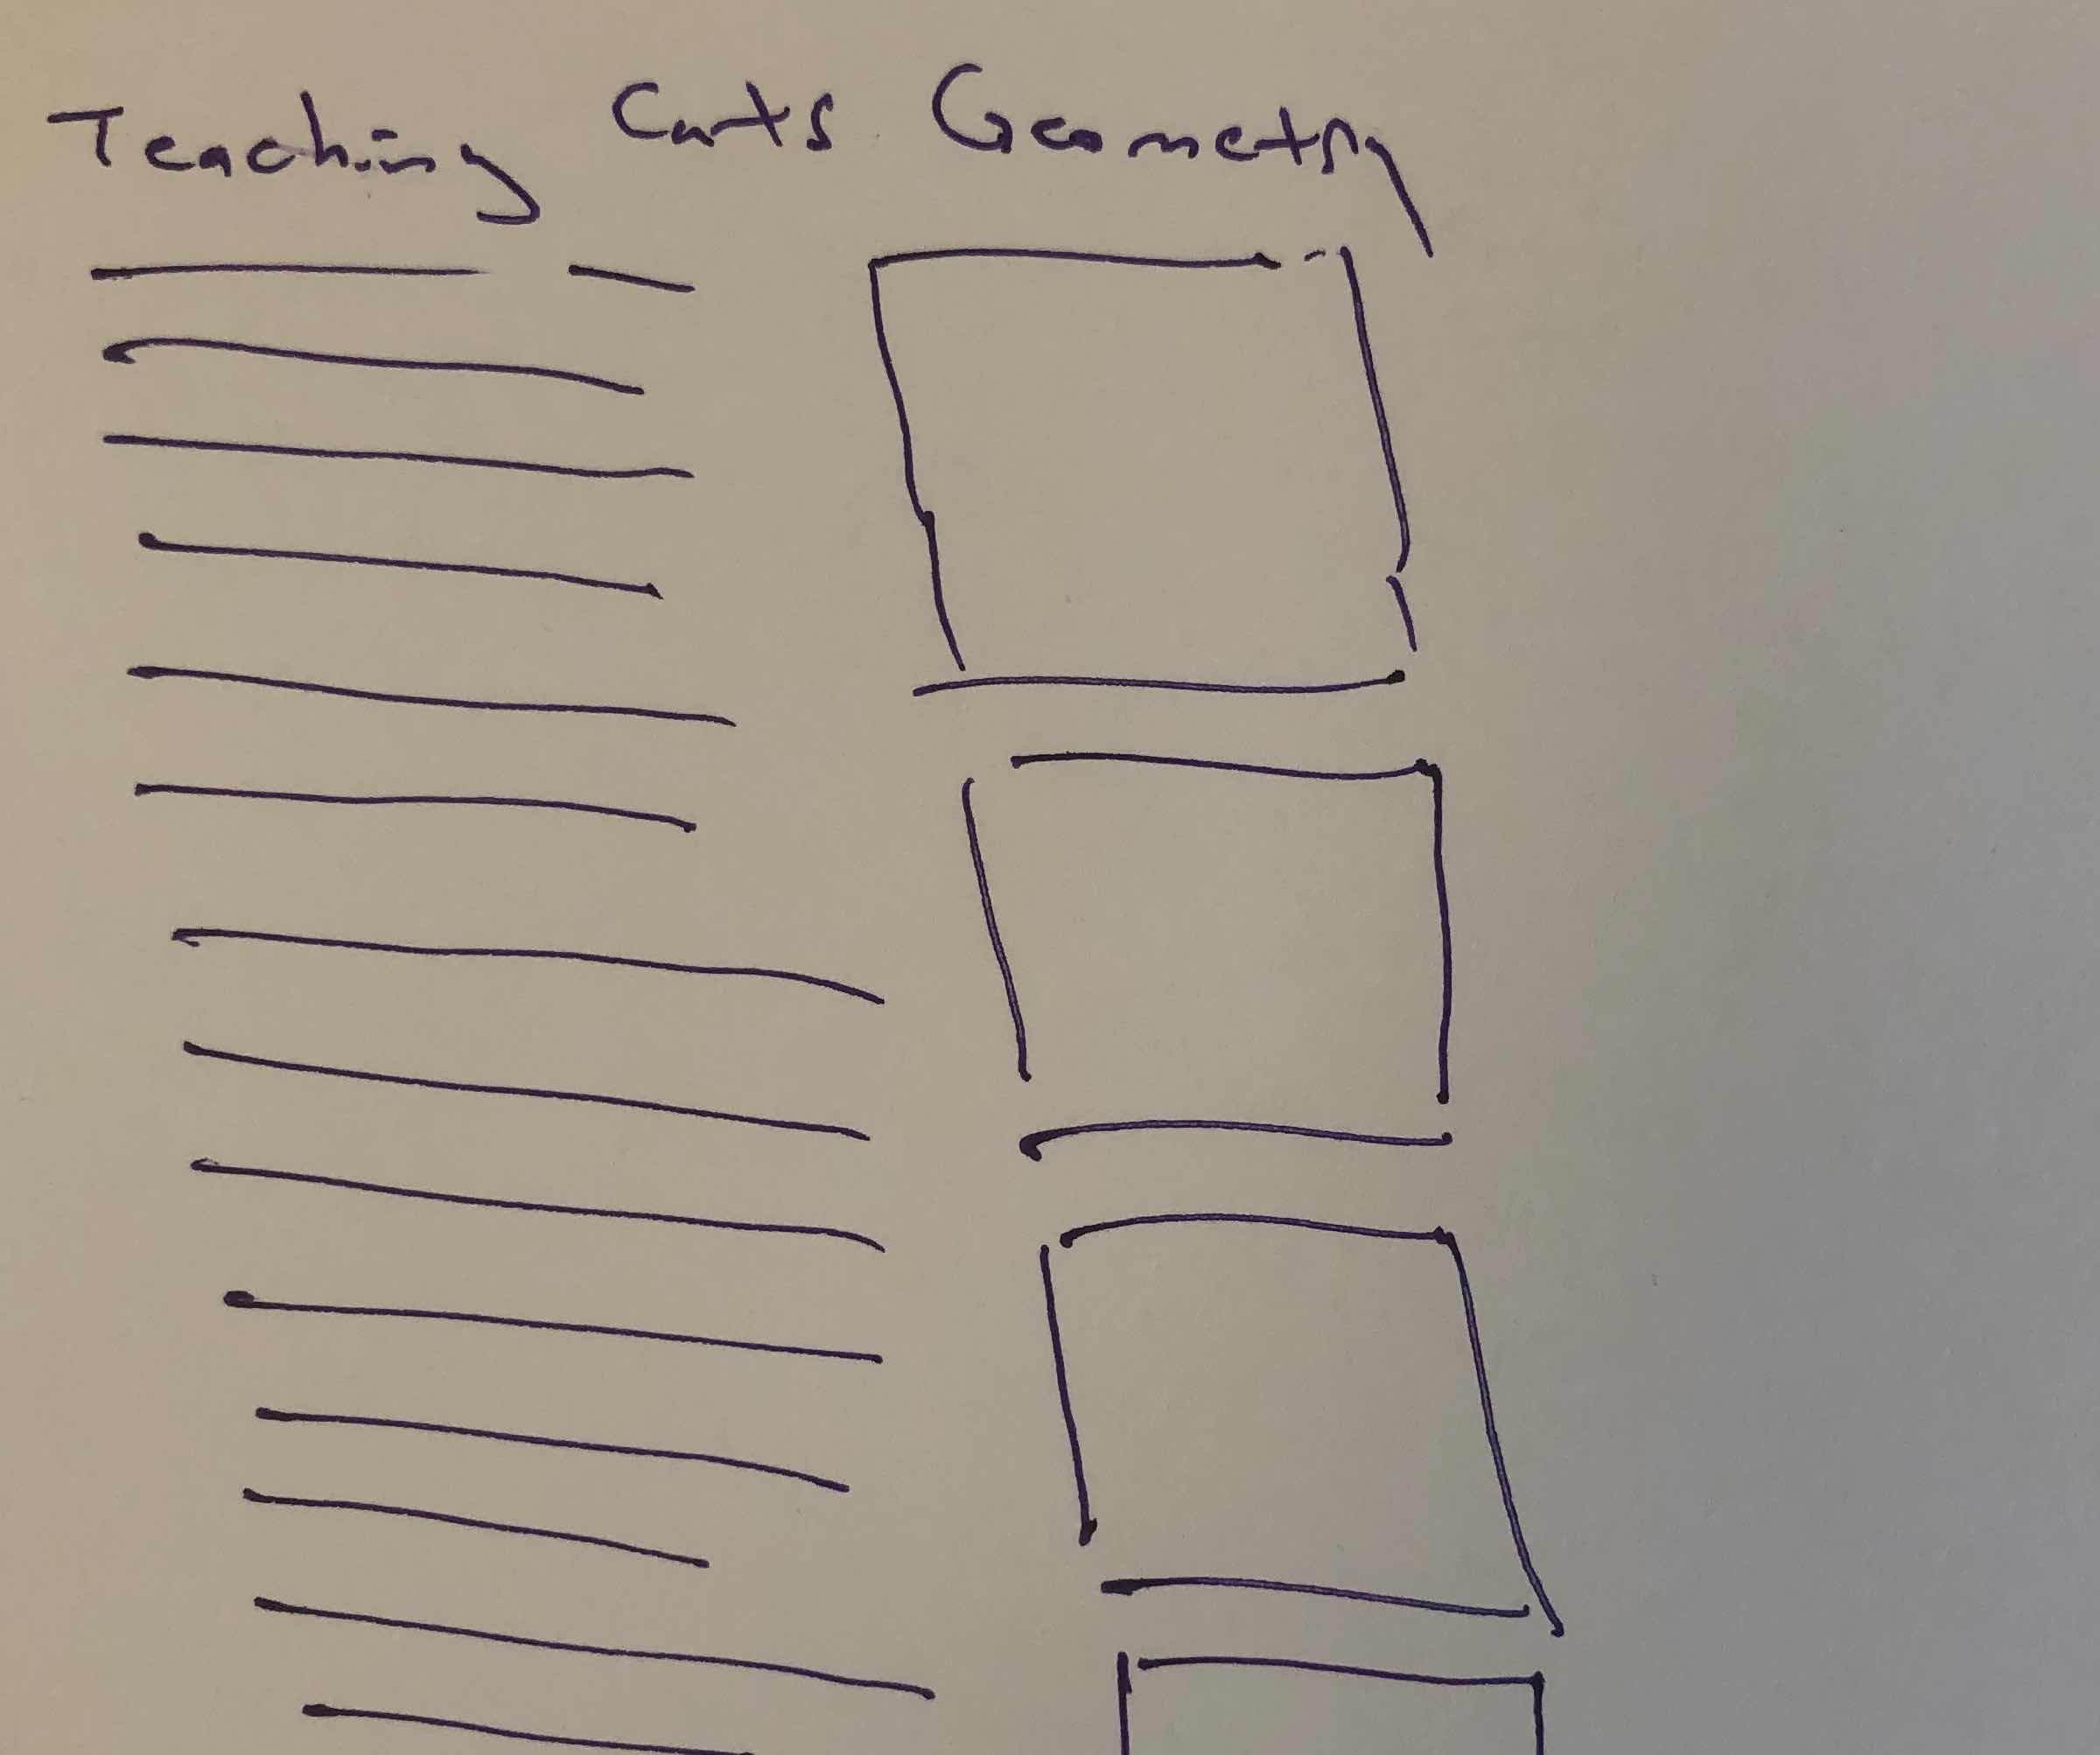 Teaching Cats Geometry